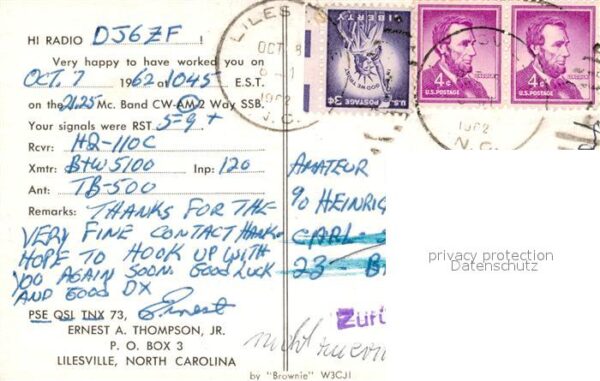 HI RADIO DJ6ZF !
Very happy to have worked you on
OCT. 7 1962 1045 E.S.T.
on the 21.25 Mc. Band CW-AM-2 Way SSB.
Your signals were RST 5-9+
Rcvr: HQ-110C
Xmtr: B+W 5100 Inp: 120
Ant: TB-500
Remarks: THANKS FOR THE
VERY FINE CONTACT HANK-
HOPE TO HOOK UP WITH
YOU AGAIN SOON. GOOD LUCK
AND GOOD DX
PSE QSL TNX 73, Ernest
ERNEST A. THOMPSON, JR.
P. O. BOX 3
LILESVILLE, NORTH CAROLINA
by "Brownie" W3CJI
LILES
OCT 8
1962
N.C.
LIBERTY
IN GOD WE TRUST
3¢ U.S. POSTAGE
4¢
U.S. POSTAGE
4¢
U.S. POSTAGE
1962
N.C.
AMATEUR
% HEINRIC
CARL-
23- B
privacy protection
Datenschutz
Zurü
nicht